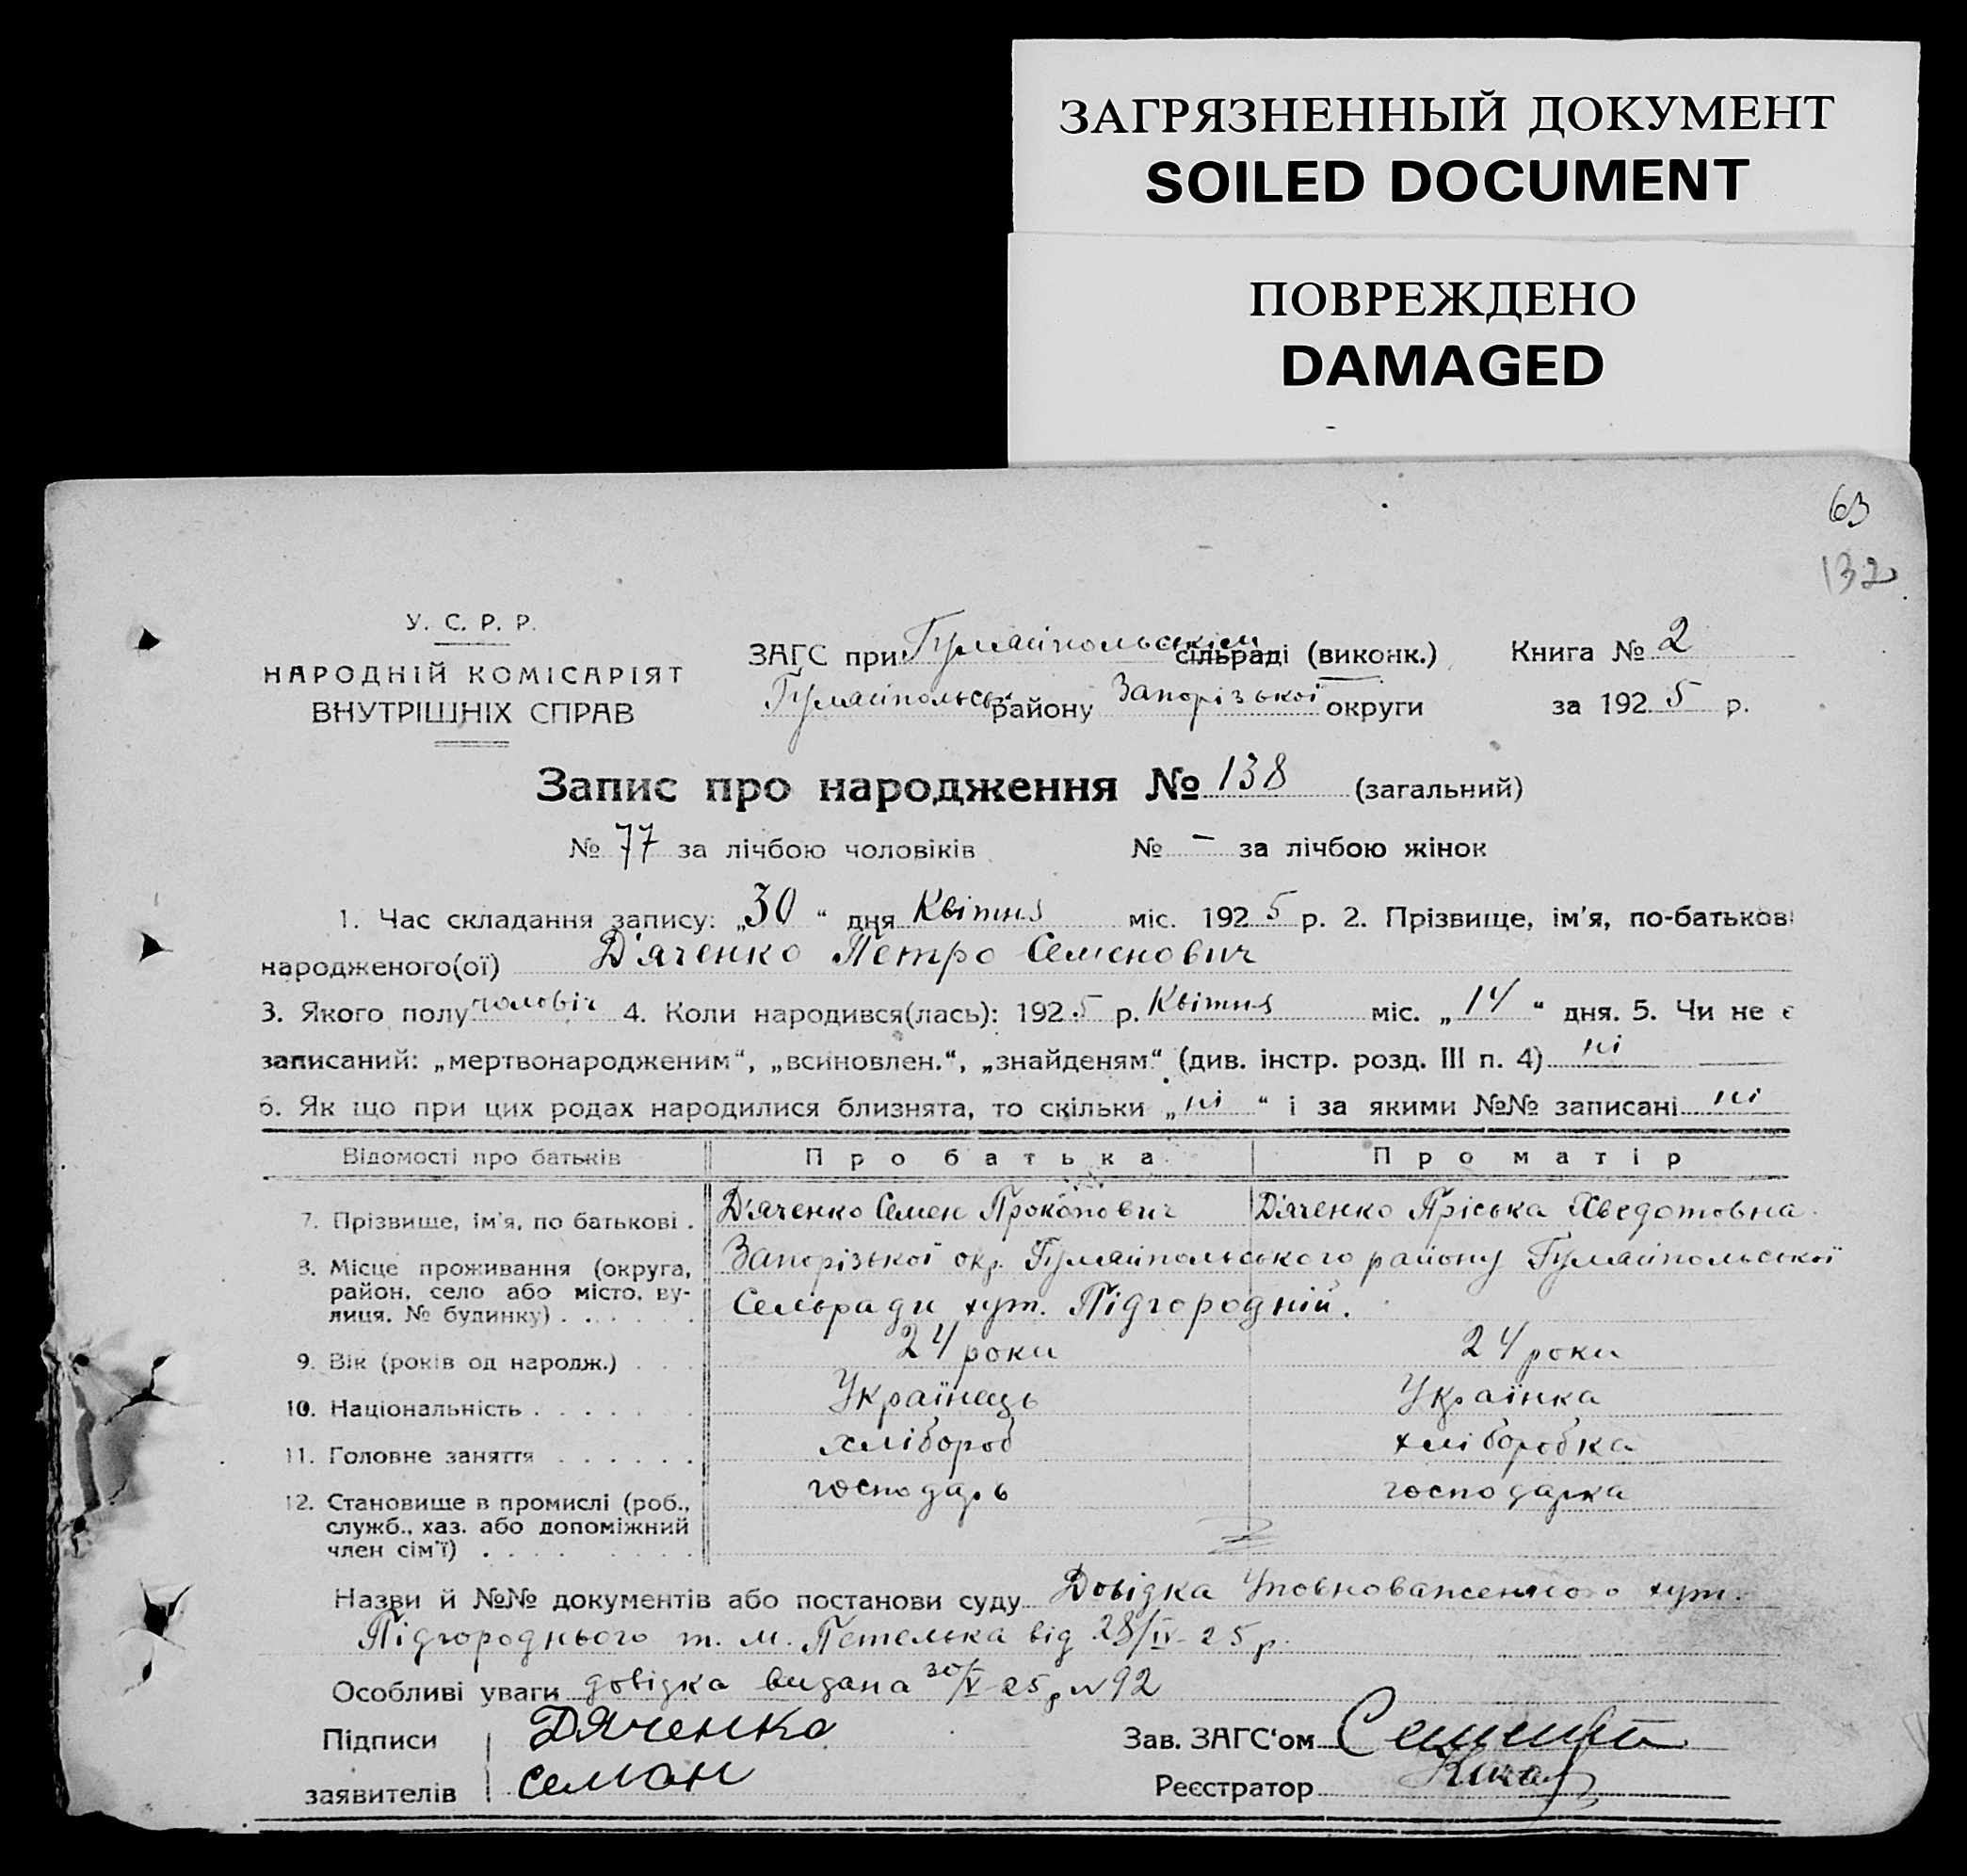 ЗАГРЯЗНЕННЫЙ ДОКУМЕНТ
SOILED DOCUMENT
ПОВРЕЖДЕНО
DAMAGED
63
132
У. С. Р. Р.
НАРОДНІЙ КОМІСАРІЯТ
ВНУТРІШНІХ СПРАВ
ЗАГС при Гуляйпольськім сільраді (виконк.)
Гуляйпольськ району Запорізької округи
Книга № 2
за 1925 р.
Запис про народження № 138 (загальний)
№ 77 за лічбою чоловіків № – за лічбою жінок
1. Час складання запису: „30“ дня Квітня міс. 1925 р. 2. Прізвище, ім'я, по-батькові
народженого(ої) Д'яченко Петро Семенович
3. Якого полу чоловіч 4. Коли народився(лась): 1925 р. Квітня міс. „14“ дня. 5. Чи не є
записаний: „мертвонародженим“, „всиновлен.“, „знайденям“ (див. інстр. розд. III п. 4) ні
6. Як що при цих родах народилися близнята, то скільки „ні“ і за якими №№ записані ні
Відомості про батьків Про батька Про матір
7. Прізвище, ім'я, по батькові . Д'яченко Семен Прокопович Д'яченко Пріська Хведотовна
8. Місце проживання (округа, район, село або місто, вулиця, № будинку) . . . . . . Запорізької окр. Гуляйпольського району Гуляйпольської
Сельради хут. Підгородній.
9. Вік (років од народж.) . . . 24 роки 24 роки
10. Національність . . . . . . Українець Українка
11. Головне заняття . . . . . . хлібороб хліборобка
12. Становище в промислі (роб., служб., хаз. або допоміжний член сім'ї) . . . . господарь господарка
Назви й №№ документів або постанови суду Довідка Уповноваженного хут.
Підгороднього т. м. Петелька від 28/IV-25 р.
Особливі уваги довідка видана 30/V 25 р №92
Підписи заявителів
Дяченко
Семан
Зав. ЗАГС'ом
Реєстратор